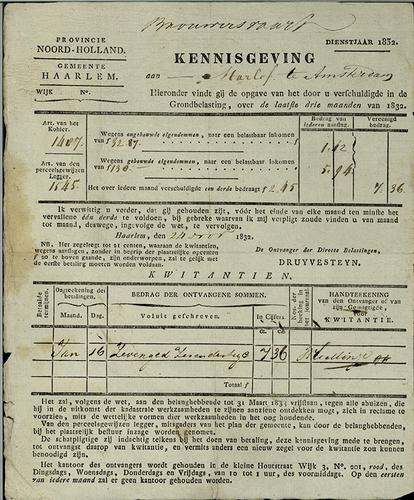 Brouwersvaart
PROVINCIE
NOORD-HOLLAND.
GEMEENTE
HAARLEM.
WIJK No.
DIENSTJAAR 1832.
KENNISGEVING
aan te Amsterdam
Hieronder vindt gij de opgave van het door u verschuldigde in de
Grondbelasting, over de laatste drie maanden van 1832.
Bedrag van iederen aanslag.
Vereenigd bedrag.
Art. van het Kohier.
1407.
Wegens ongebouwde eigendommen, naar een belastbaar inkomen
van
1.42
Art. van den perceelsgewijzen Legger.
1545
Wegens gebouwde eigendommen, naar een belastbaar inkomen
van
5.94
Het over iedere maand verschuldigde een derde bedraagt f 2.45
7.36
Ik verwittig u verder, dat gij gehouden zijt, vóór het einde van elke maand ten minste het
vervallene één derde te voldoen, bij gebreke waarvan ik mij verpligt zoude vinden u van
maand tot maand, deswege, ingevolge de wet, te vervolgen.
Haarlem, 1832.
De Ontvanger der Directe Belastingen,
DRUYVESTEYN.
NB. Her zegelregt tot 21 centen, waaraan de kwitantien,
wegens aanslagen, zonder in begrip der plaatselijke opcenten
f 10 te boven gaande, zijn onderworpen, zal te gelijk met
de eerste betaling moeten worden voldaan.
KWITANTIEN.
Betaalde termijnen.
Dagteekening der betalingen.
BEDRAG DER ONTVANGENE SOMMEN.
HANDTEEKENING
van den Ontvanger of van
zijn Gemagtigde,
voor
KWITANTIE.
Maand.
Dag.
Voluit geschreven.
In Cijfers.
Jan 16 7 36
Totaal f
Het zal, volgens de wet, aan den belanghebbende tot 31 Maart 1833 vrijstaan, tegen alle abuizen, die
hij in de uitkomst der kadastrale werkzaamheden te zijnen aanziene ontdekken mogt, zich in reclame te
voorzien, mits de wettelijk vormen dier werkzaamheden in het oog houdende.
Van den perceelsgewijzen legger, mitsgaders van het plan der gemeente, kan door de belanghebbenden,
bij het plaatselijk bestuur inzage worden genomen.
De schatpligtige zij indachtig telkens bij het doen van betaling, deze kennisgeving mede te brengen,
tot ontvangst daarop van kwitantie, en vermits anders een nieuw zegel voor de kwitantie zou kunnen
benoodigd zijn.
Het kantoor des ontvangers wordt gehouden in de kleine Houtstraat Wijk 3, No. 201, rood, des
Dingsdags, Woensdags, Donderdags en Vrijdags, van 10 tot 1 uur, des voormiddags. Op den eersten
van iedere maand zal er geen kantoor worden gehouden.